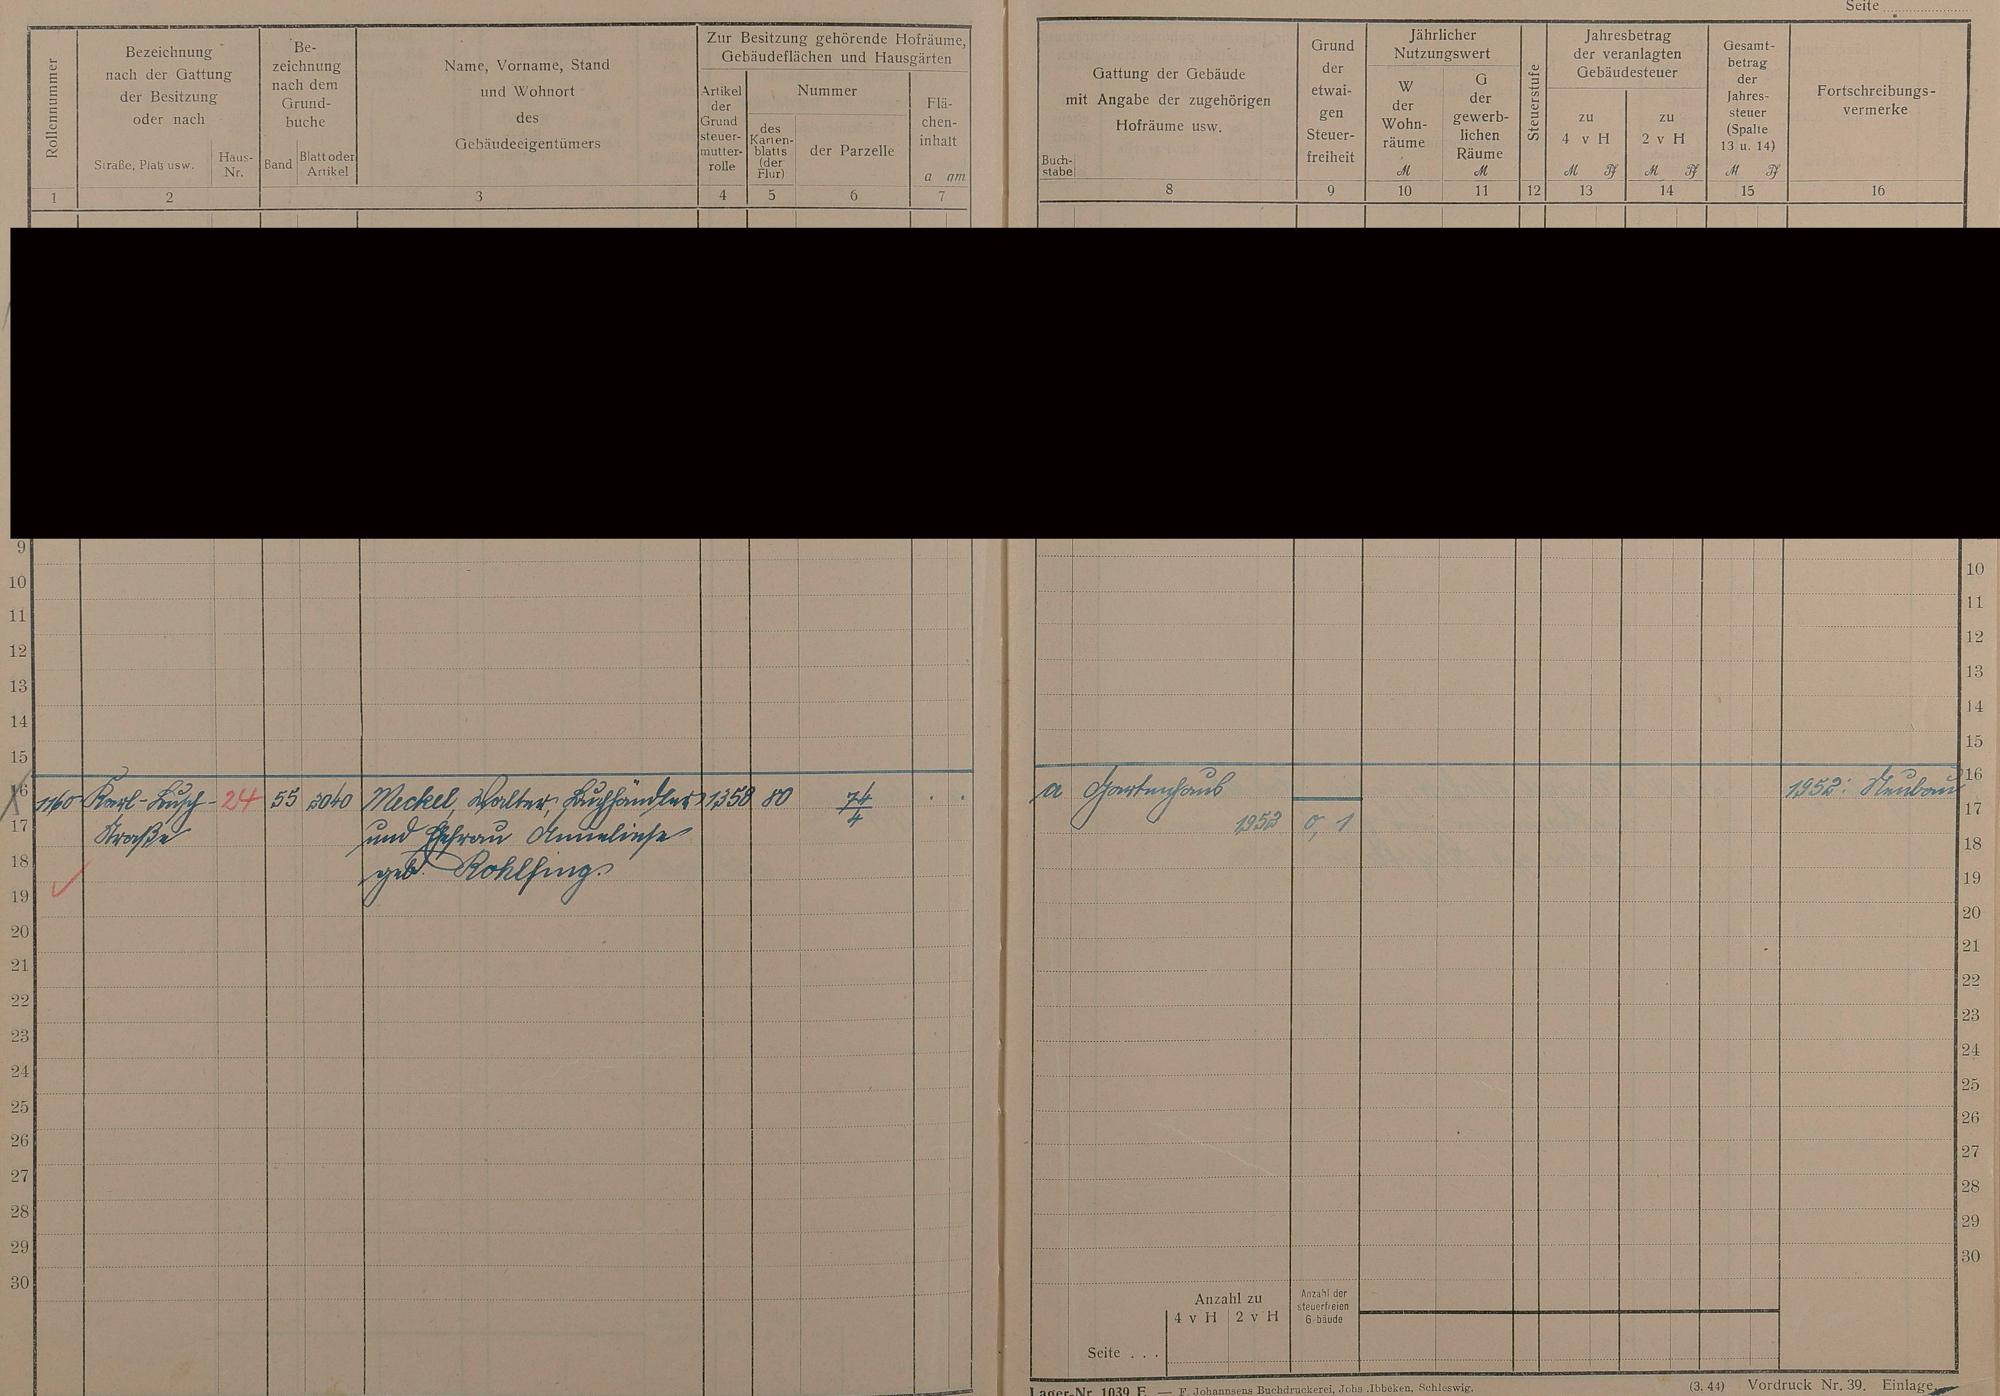 Seite
Rollennummer
Bezeichnung
nach der Gattung
der Besitzung
oder nach
Straße, Platz usw.
Haus-
Nr.
Be-
zeichnung
nach dem
Grund-
buche
Band
Blatt oder
Artikel
Name, Vorname, Stand
und Wohnort
des
Gebäudeeigentümers
Zur Besitzung gehörende Hofräume,
Gebäudeflächen und Hausgärten
Artikel
der
Grund
steuer-
mutter-
rolle
Nummer
des
Karten-
blatts
(der
Flur)
der Parzelle
Flä-
chen-
inhalt
a qm
1 2 3 4 5 6 7
Buch-
stabe
Gattung der Gebäude
mit Angabe der zugehörigen
Hofräume usw.
Grund
der
etwai-
gen
Steuer-
freiheit
Jährlicher
Nutzungswert
W
der
Wohn-
räume
M
G
der
gewerb-
lichen
Räume
M
Steuerstufe
Jahresbetrag
der veranlagten
Gebäudesteuer
zu
4 v H
M Pf
zu
2 v H
M Pf
Gesamt-
betrag
der
Jahres-
steuer
(Spalte
13 u. 14)
M Pf
Fortschreibungs-
vermerke
8 9 10 11 12 13 14 15 16
9
10
11
12
13
14
15
16
17
18
19
20
21
22
23
24
25
26
27
28
29
30
1760 Karl-Busch- 24 55 2040 Meckel, Walter, Buchhändler 1358 80 74/4
Straße und Ehefrau Anneliese
geb. Rohlfing.
a Gartenhaus 1952: Neubau
1952 0,1
10
11
12
13
14
15
16
17
18
19
20
21
22
23
24
25
26
27
28
29
30
Anzahl zu
4 v H 2 v H
Anzahl der
steuerfreien
Gebäude
Seite . . .
Lager-Nr. 1039 E. — F. Johannsens Buchdruckerei, Johs. Ibbeken, Schleswig.
(3. 44) Vordruck Nr. 39. Einlage